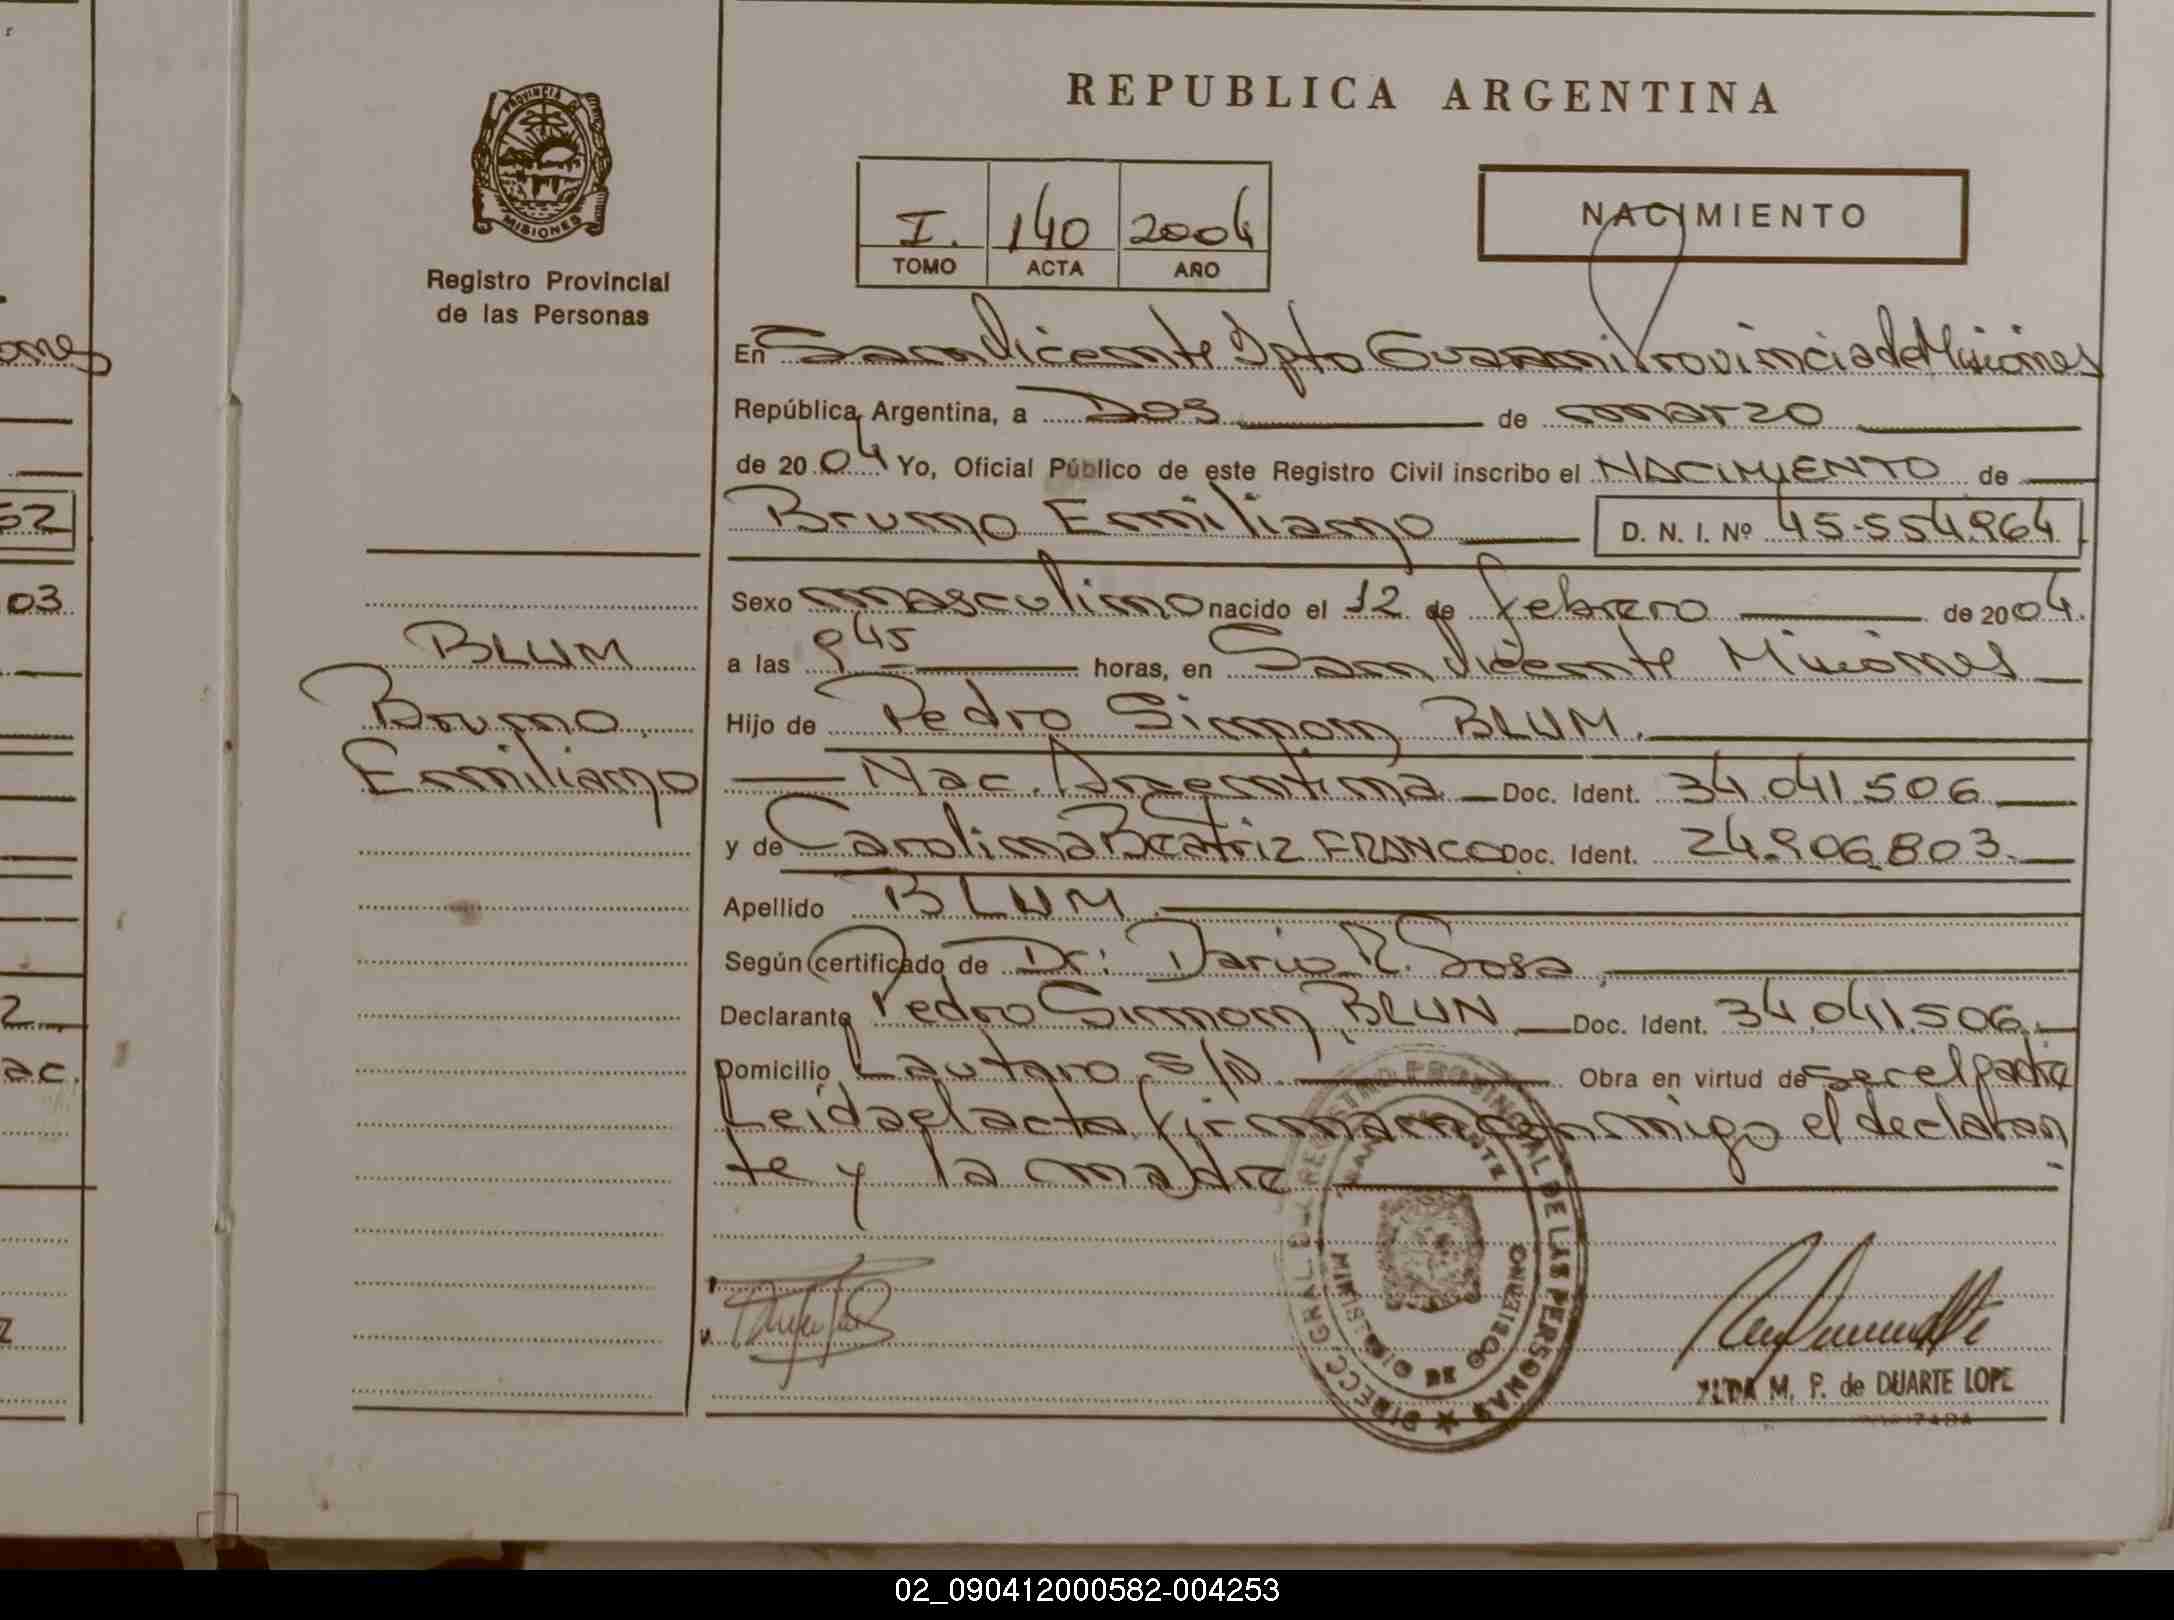 REPUBLICA ARGENTINA
PROVINCIA DE
MISIONES
Registro Provincial
de las Personas
I. 140 2004
TOMO ACTA AÑO
NACIMIENTO
En San Vicente Dpto Guarani Provincia de Misiones
República Argentina, a Dos de marzo
de 2004 Yo, Oficial Público de este Registro Civil inscribo el NACIMIENTO de
Bruno Emiliano D. N. I. Nº 45.554.964
Sexo masculino nacido el 12 de febrero de 2004.
a las 9 45 horas, en San Vicente Misiones
Hijo de Pedro Simon BLUM.
Nac. Argentina Doc. Ident. 34.041.506
y de Carolina Beatriz FRANCO Doc. Ident. 24.906.803.
Apellido BLUM
Según certificado de Dr: Dario R. Sosa
Declarante Pedro Simon BLUN Doc. Ident. 34.041.506.
Domicilio Lautaro S/N Obra en virtud de ser el padre
Leida el acta firman conmigo el declaran
te y la madre
BLUM
Bruno
Emiliano
DIRECC. GRAL. DEL REGISTRO PROVINCIAL DE LAS PERSONAS
MINISTERIO DE GOBIERNO
M. P. de DUARTE LOPE
ones
52
03
2
ac.
2
02_090412000582-004253